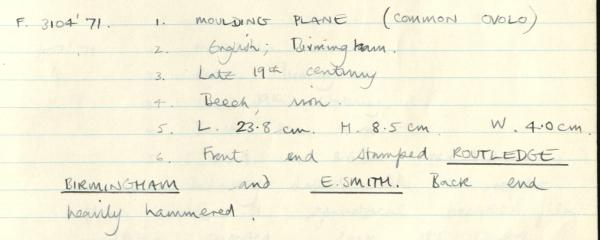 F. 3104'71. 1. MOULDING PLANE (COMMON OVOLO)
2. English; Birmingham.
3. Late 19th century
4. Beech, iron.
5. L. 23.8 cm. H. 8.5 cm. W. 4.0 cm.
6. Front end stamped ROUTLEDGE
BIRMINGHAM and E. SMITH. Back end
heavily hammered.